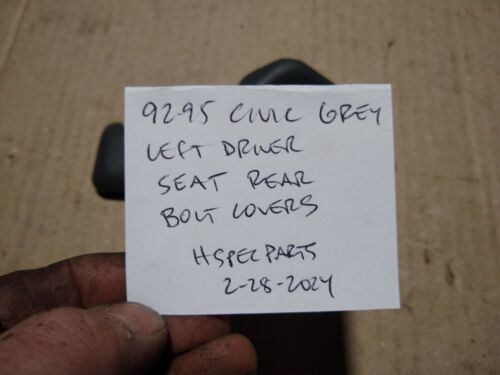 92-95 CIVIC GREY
LEFT DRIVER
SEAT REAR
BOLT COVERS
HSPECPARTS
2-28-2024